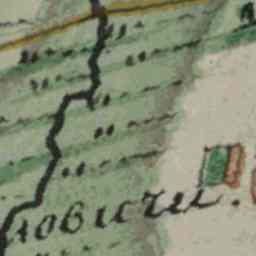 ловичи.